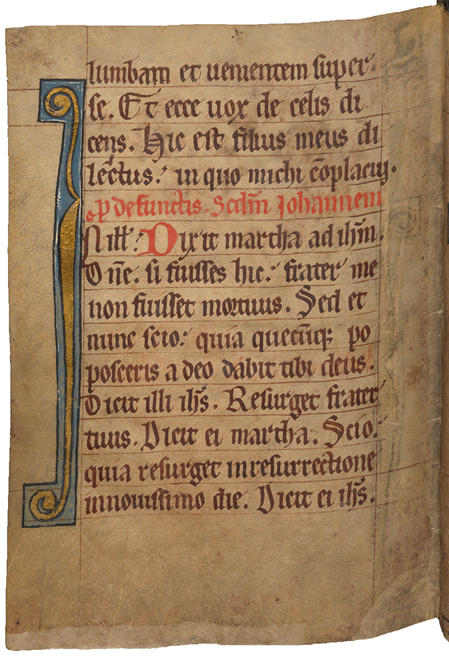 lumbam et uenientem super
se. Et ecce uox de celis di
cens. Hic est filius meus di
lectus. in quo michi cōplacuj.
p defunctis. Scdm Johannem
N illꝰ. Dixit martha ad ihm̄.
Dn̄e. si fuisses hic. frater me
non fuisset mortuus. Sed et
nunc scio. quia quecūq; po
posceris a deo dabit tibi deus.
Dicit illi ihs̄. Resurget frater
tuus. Dicit ei martha. Scio.
quia resurget in resurrectione
in nouissimo die. Dicit ei ihs̄.